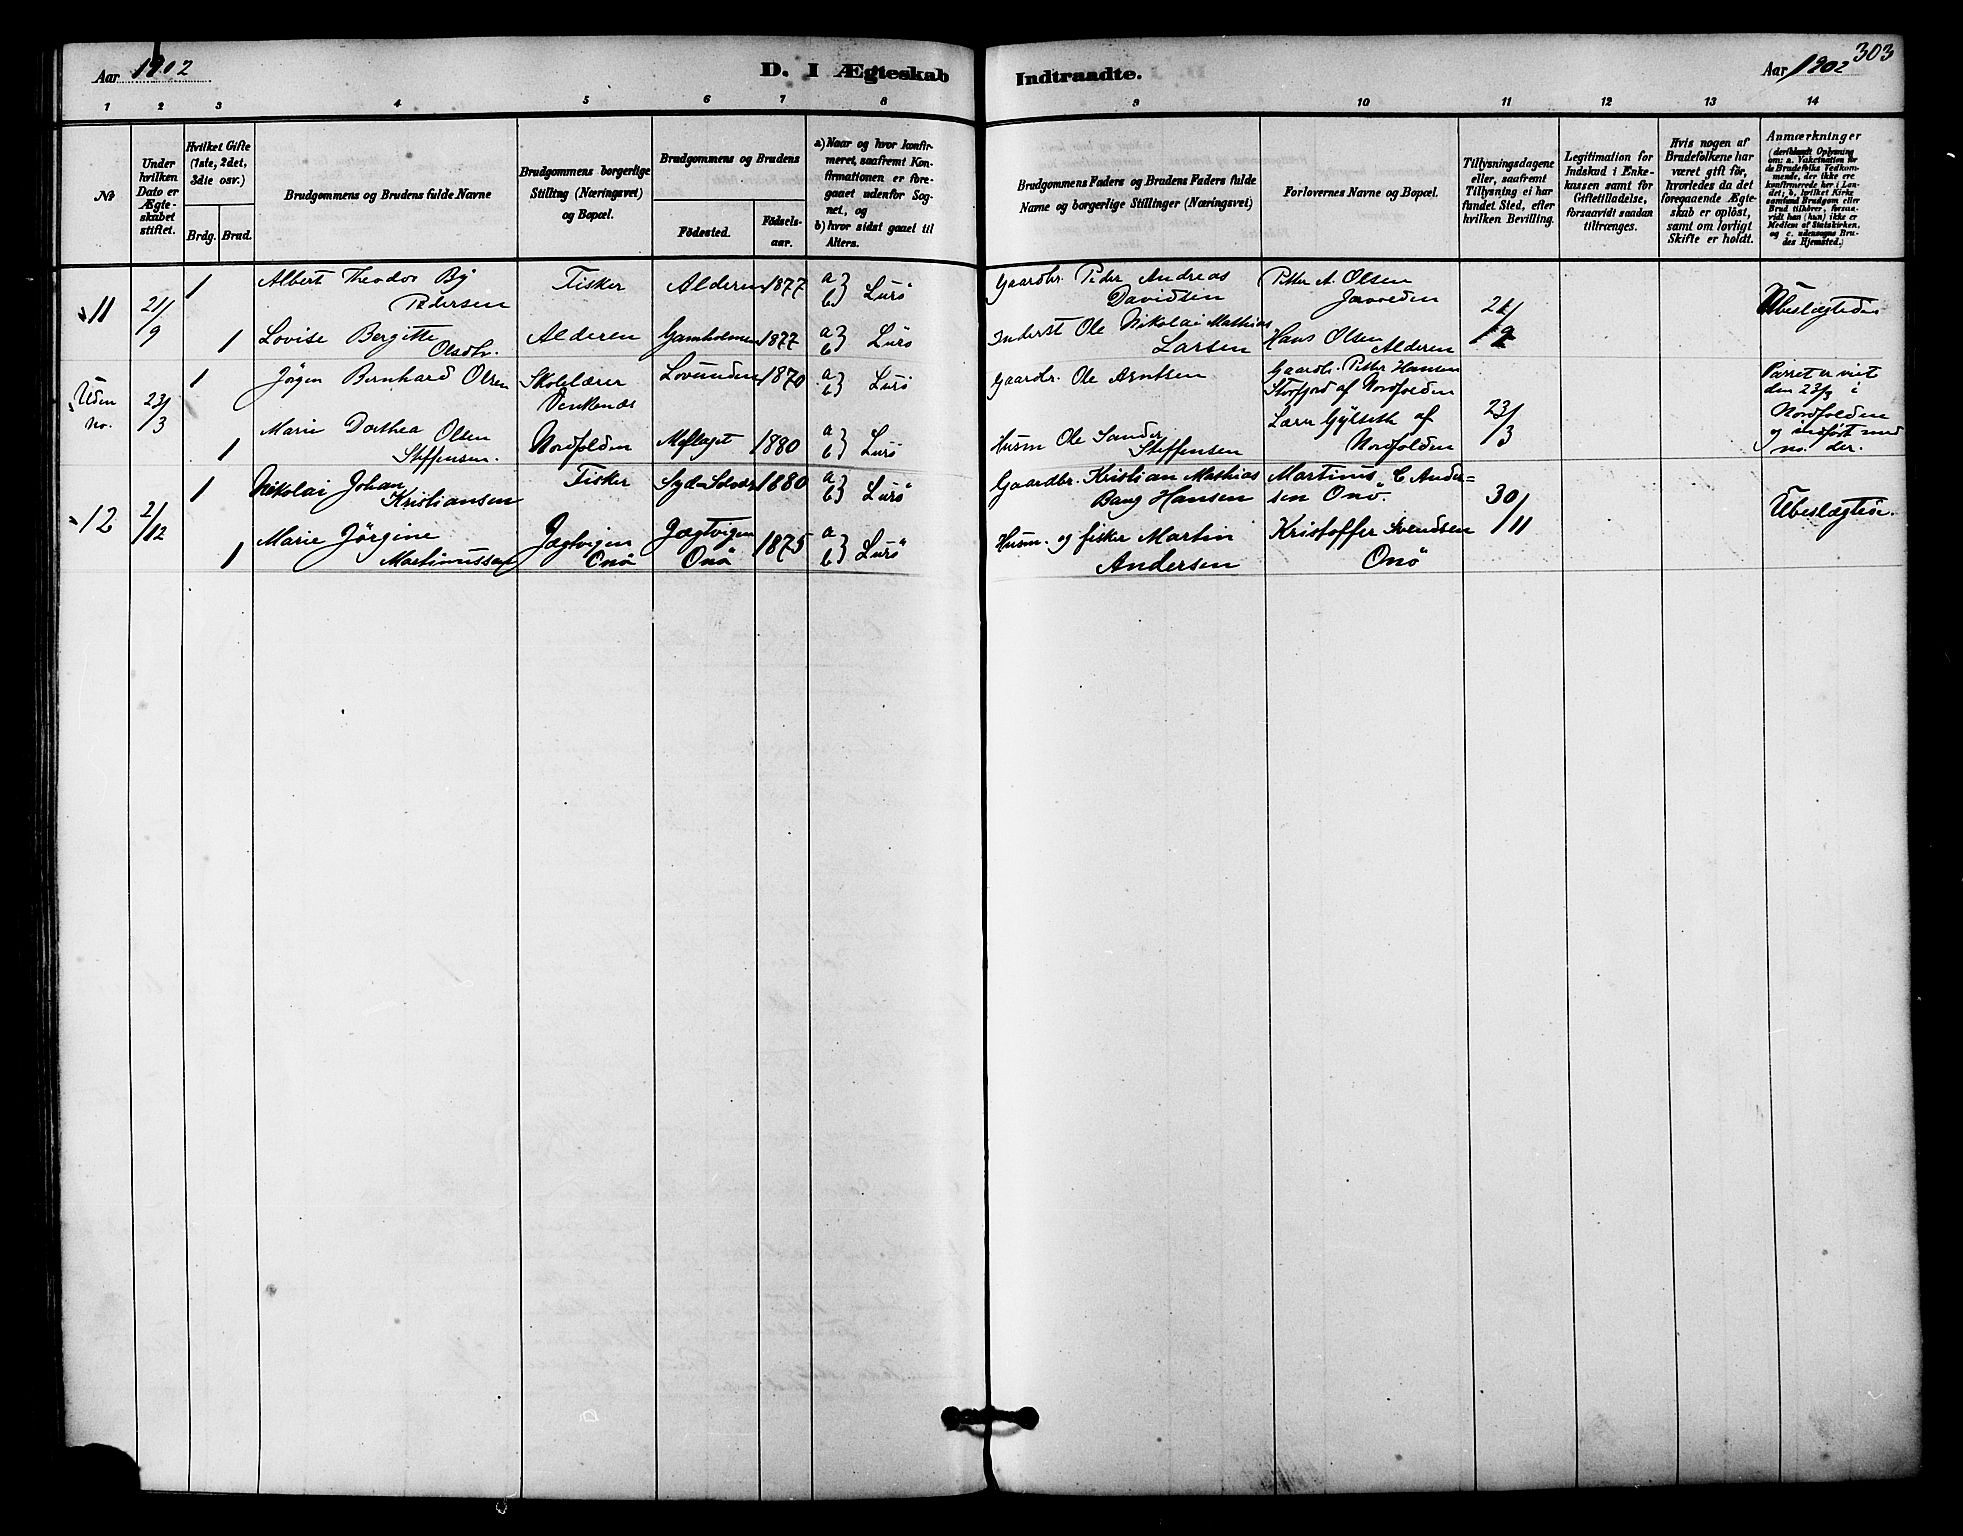 Aar 1902
D. I Ægteskab Indtraadte.
Aar 1902
303
1 2 3 4 5 6 7 8 9 10 11 12 13 14
No
Under hvilken Dato er Ægteskabet stiftet.
Hvilket Gifte (1ste, 2det, 3die osv.)
Brdg. Brud.
Brudgommens og Brudens fulde Navne
Brudgommens borgerlige Stilling (Næringsvei) og Bopæl.
Brudgommens og Brudens
Födested.
Födsels-aar.
a) Naar og hvor konfirmeret, saafremt Konfirmationen er foregaaet udenfor Sognet, og
b) hvor sidst gaaet til Alters.
Brudgommens Faders og Brudens Faders fulde Navne og borgerlige Stillinger (Næringsvei)
Forlovernes Navne og Bopæl.
Tillysningsdagene eller, saafremt Tillysning ei har fundet Sted, efter hvilken Bevilling.
Legitimation for Indskud i Enkekassen samt for Giftetilladelse, forsaavidt saadan tiltrænges.
Hvis nogen af Brudefolkene har været gift för, hvorledes da det foregaaende Ægteskab er oplöst, samt om lovligt Skifte er holdt.
Anmærkninger
(deriblandt Oplysning om: a. Vakcination for de Brudefolks Vedkommende, der ikke ere konfirmerede her i Landet; b. hvilket Kirkesamfund Brudgom eller Brud tilhörer, forsaavidt han (hun) ikke er Medlem af Statskirken, og c. udensogns Brudes Hjemsted.)
11 21/9 1 Albert Theodor By Pedersen Fisker Alderen 1877 a} b} Lurö Gaardbr. Peder Andreas Davidsen Petter A. Olsen 21/9 Ubeslægtede
1 Lovise Bergitte Olsdtr. Alderen Gamholmen 1877 a} b} Lurö Inderst Ole Nikolai Mathias Larsen Hans Olsen Alderen
Uden no. 23/3 1 Jögen Bernhard Olsen Skolelærer Lovunden 1870 a} b} Lurö Gaardbr. Ole Arntsen Gaardbr. Petter Hansen Storfjord af Nordfolden 23/3 Parret er viet den 23/3 i Nordfolden og indfört med no. der.
1 Marie Dorthea Olsen Steffensen. Nordfolden 1880 a} b} Lurö Husm Ole Sander Steffensen Lærer Gylseth af Nordfolden
12 2/12 1 Nikolai Johan Kristiansen Fisker 1880 a} b} Lurö Gaardbr. Kristian Mathias Bang Hansen Martinus C Andersen Onö. 30/11 Ubeslægtede.
1 Marie Jörgine Jægtvigen Onö Jægtvigen Onö 1875 a} b} Lurö Husm. og fisker Martin Andersen Kristoffer Svendsen Onö